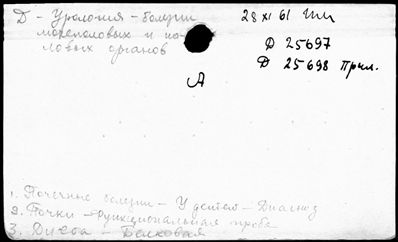 Д - Урология - болезни
мочеполовых и по-
ловых органов
28 XI 61
Д 25697
Д 25698 Прил.
А
1. Почечные болезни - У детей - Диагноз
2. Почки - Функциональная проба
3. Диета - Белковая